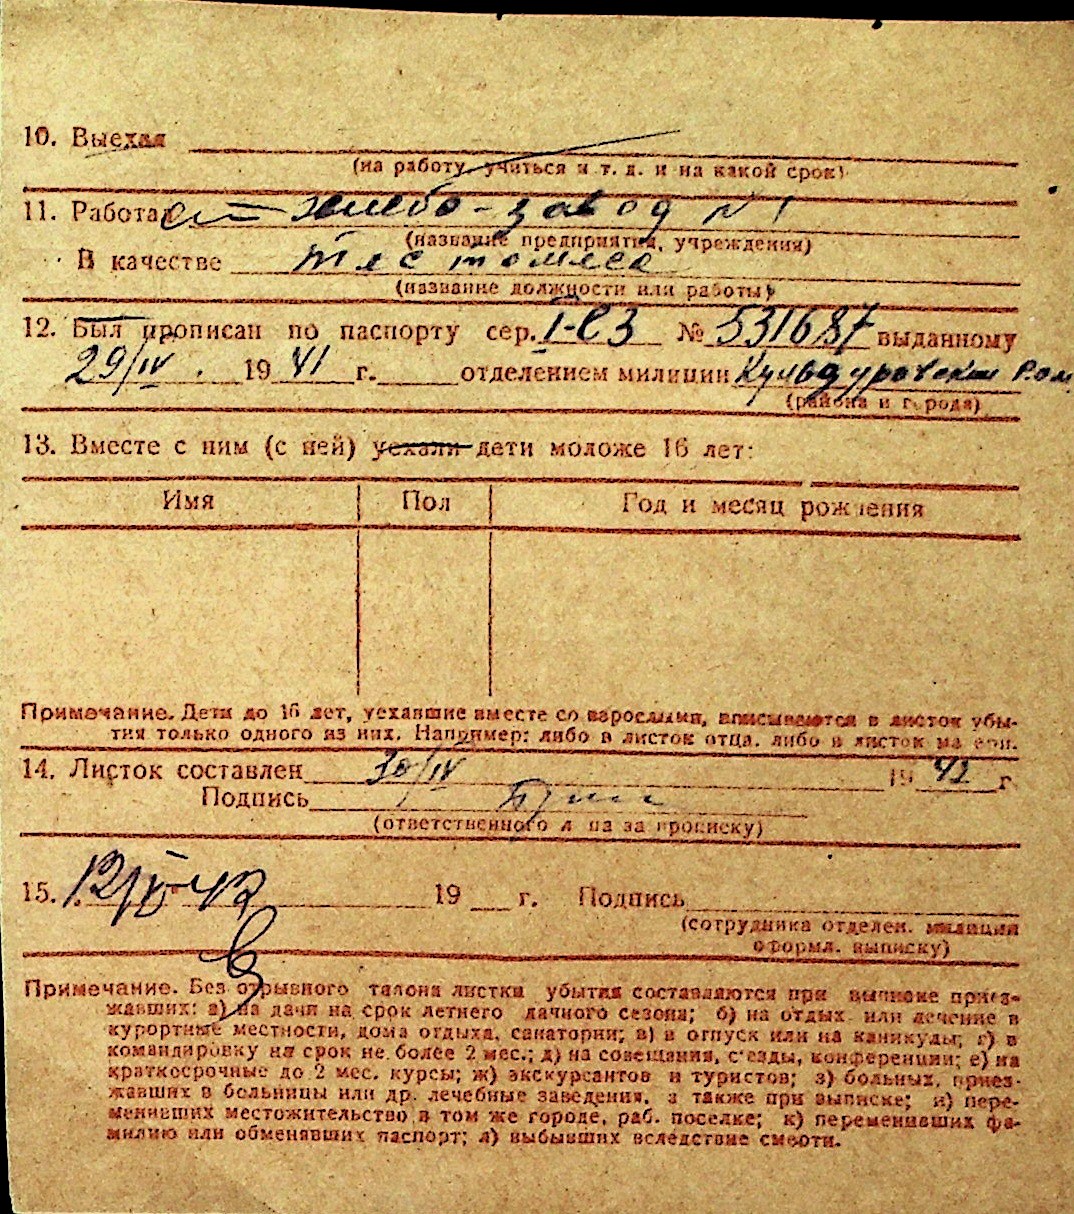 10. Выехал
(на работу, учиться и т. д. и на какой срок)
11. Работает Хлебо-завод № 1
(название предприятия, учреждения)
В качестве тестомеса
(название должности или работы)
12. Был прописан по паспорту сер. I-СЗ № 531687 выданному
29/IV. 1941 г. отделением милиции Кульдуровским Р.о.м
(района и города)
13. Вместе с ним (с ней) уехали дети моложе 16 лет:
Имя Пол Год и месяц рождения
Примечание. Дети до 16 лет, уехавшие вместе со взрослыми, вписываются в листок убы-
тия только одного из них. Например: либо в листок отца, либо в листок матери.
14. Листок составлен 30/IV 1942 г.
Подпись
(ответственного лица за прописку)
15. 12/V-42 19 г. Подпись
(сотрудника отделен. милиции
оформл. выписку)
Примечание. Без отрывного талона листки убытия составляются при выписке приез-
жавших: а) на дачи на срок летнего дачного сезона; б) на отдых или лечение в
курортные местности, дома отдыха, санатории; в) в отпуск или на каникулы; г) в
командировку на срок не более 2 мес.; д) на совещания, съезды, конференции; е) на
краткосрочные до 2 мес. курсы; ж) экскурсантов и туристов; з) больных, приез-
жавших в больницы или др. лечебные заведения, а также при выписке; и) пере-
менивших местожительство в том же городе, раб. поселке; к) переменивших фа-
милию или обменявших паспорт; л) выбывших вследствие смерти.